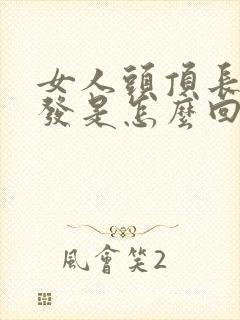 女人頭頂長
發是怎麼回
風會笑2